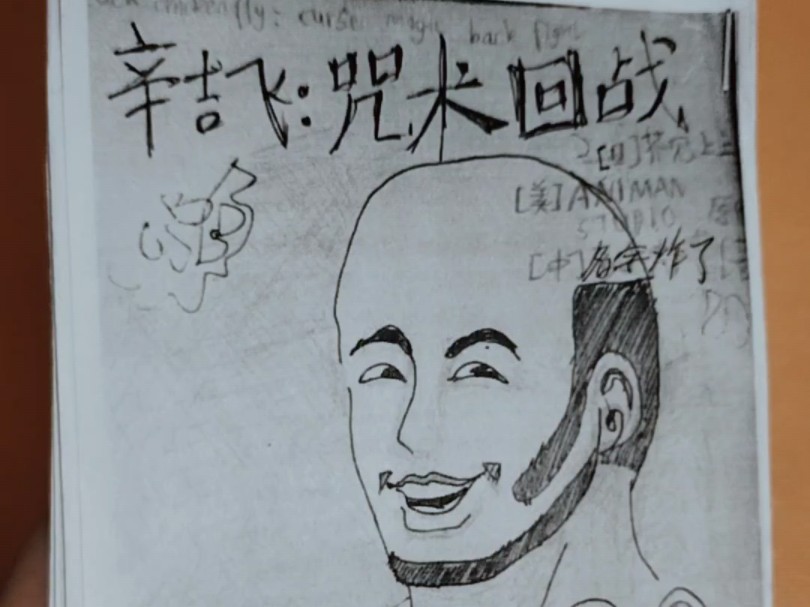 chickenfly: curse magic back fight
辛吉飞:咒术回战
[日]芥见上上
[美]ANIMAN
STUDIO
[中]名字炸了